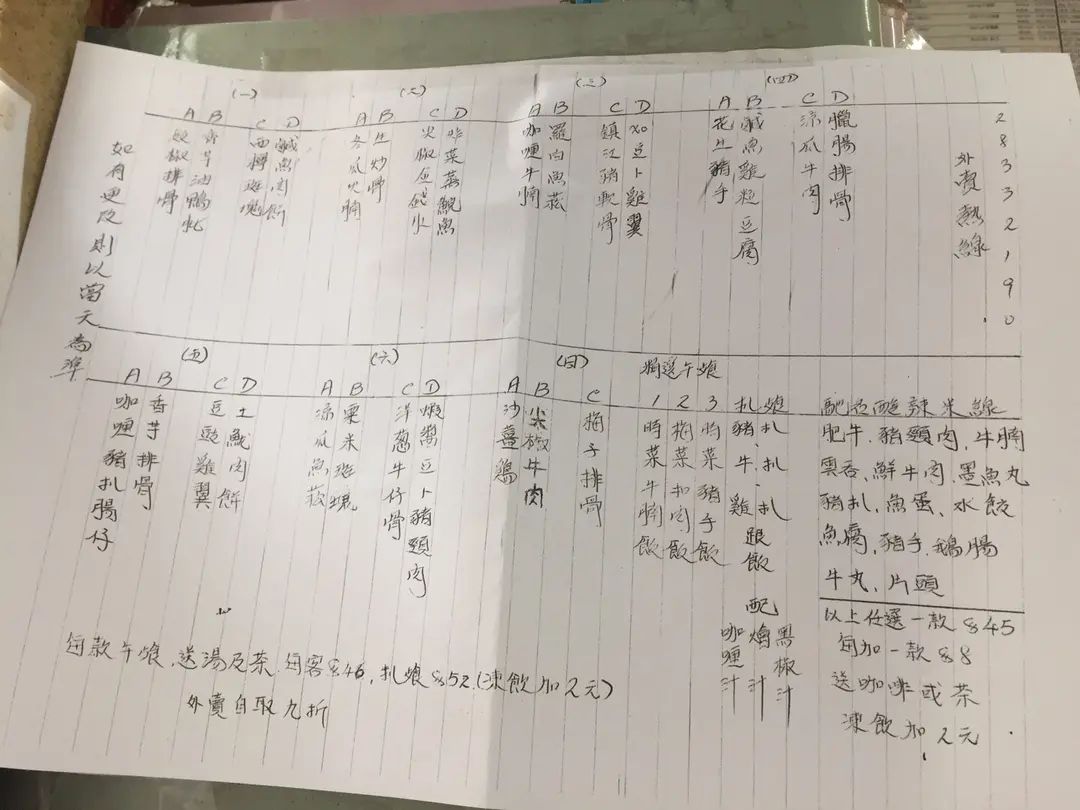 (一)
A 豉椒排骨
B 香芋油鴨
C 西檸斑塊
D 鹹魚肉餅
(二)
A 冬瓜火腩
B 生炒骨
C 椒魚
D 咋菜蒸鯇魚
(三)
A 咖喱牛腩
B 羅白魚菘
C 鎮江豬軟骨
D XO豆卜雞翼
(四)
A 花生豬手
B 鹹魚雞粒豆腐
C 涼瓜牛肉
D 臘腸排骨
外賣熱線
28332190
如有更改則以當天為準
(五)
A 咖喱豬扒腸仔
B 香芋排骨
C 豆豉雞翼
D 土魷肉餅
(六)
A 涼瓜魚菘
B 粟米斑塊
C 洋葱牛仔骨
D 蝦醬豆卜豬頸肉
(日)
A 沙薑鷄
B 尖椒牛肉
C 梅子排骨
精選午飧
1 時菜牛腩飯
2 梅菜扣肉飯
3 時菜豬手飯
扒飧
豬扒.牛扒.雞扒
跟飯
配
咖喱汁
燒汁
黑椒汁
酸辣米線
肥牛.豬頸肉.牛腩
雲吞.鮮牛肉.墨魚丸
豬扒.魚蛋.水餃
魚腐.豬手.鵝腸
牛丸.片頭
以上任選一款$45
每加一款$8
送咖啡或茶
凍飲加2元
每款午飧.送湯及茶.每客$46,扒飧$52.(凍飲加2元)
外賣自取九折